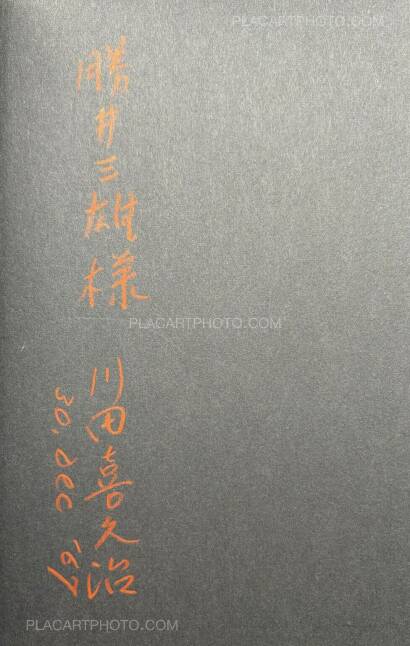 PLACARTPHOTO.COM
勝井三雄様
川田喜久治
30. Dec '97
PLACARTPHOTO.COM
PLACARTPHOTO.COM